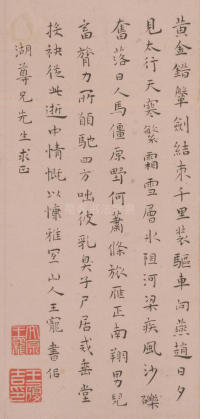 黃金錯鞶劍結束千里裝驅車向燕趙日夕
見太行天寒繁霜雪層冰阻河梁疾風沙礫
奮落日人馬僵原野何蕭條旅雁正南翔男兒
富膂力所願馳四方咄彼乳臭子尸居或垂堂
投袂從此逝中情慨以慷雅宜山人王寵書似
湖尊兄先生求正